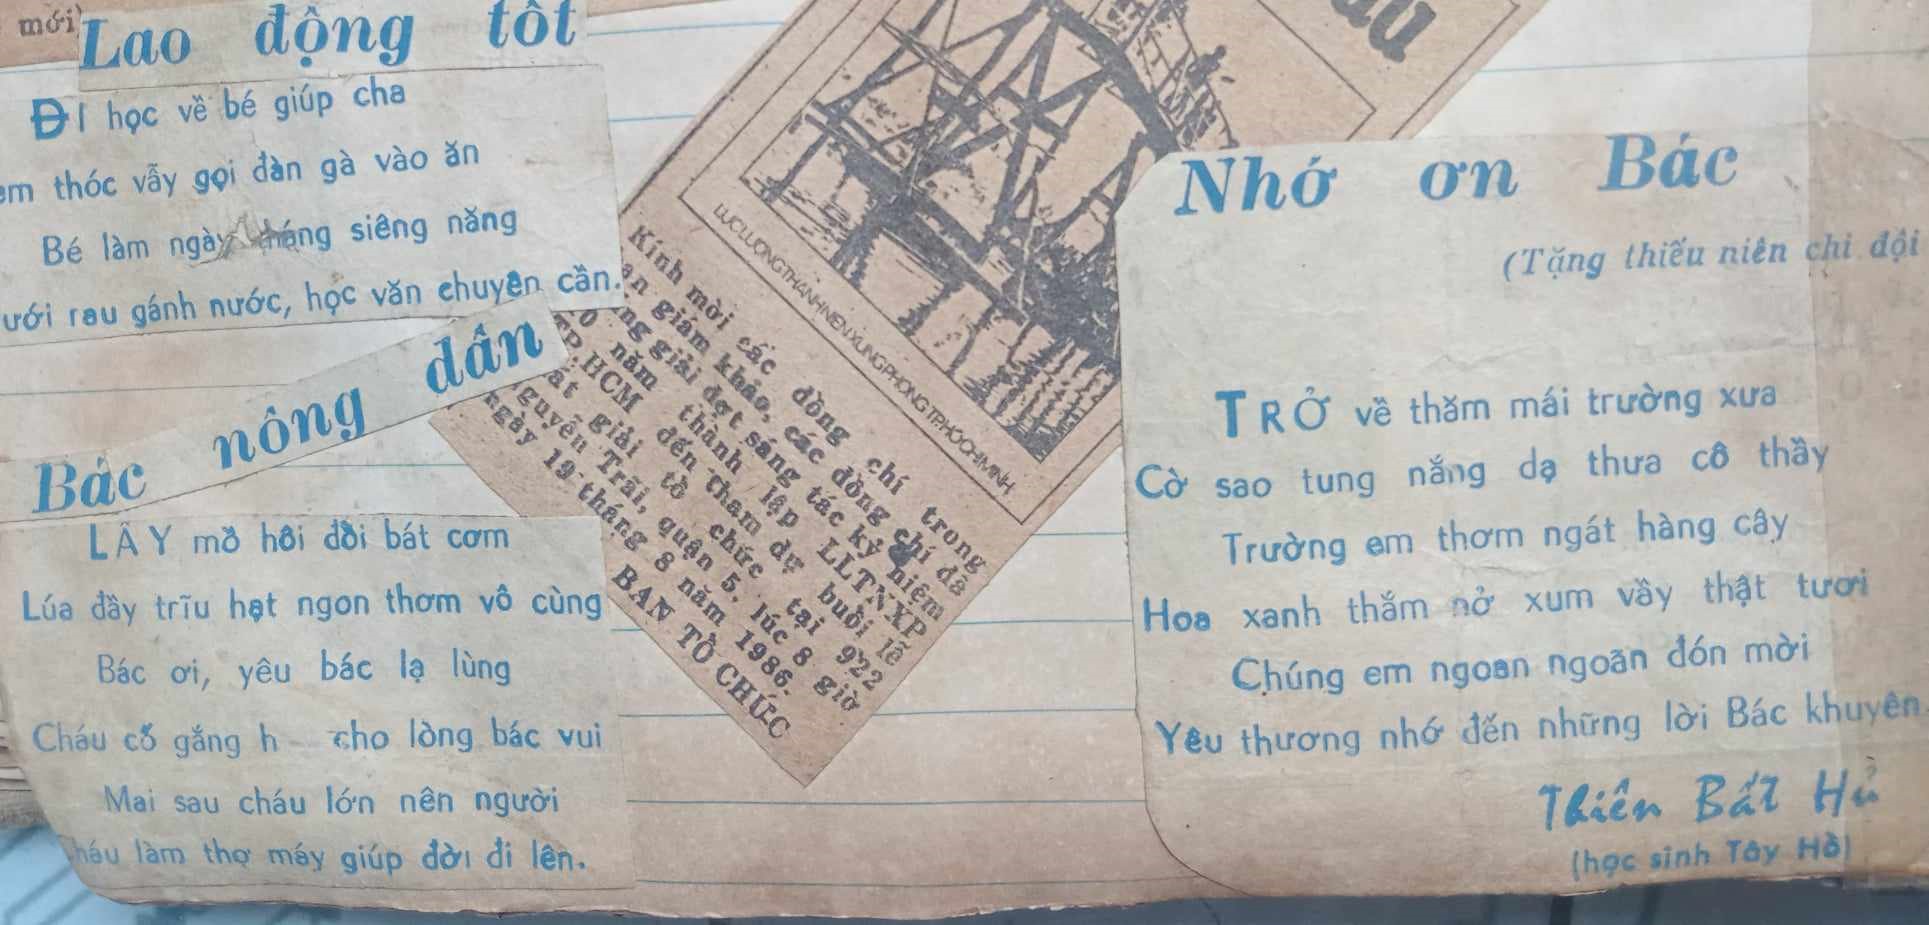 mới)
Lao động tốt
ĐI học về bé giúp cha
thóc vẫy gọi đàn gà vào ăn
Bé làm ngày tháng siêng năng
rau gánh nước, học văn chuyên cần.
Bác nông dân
LẤY mồ hôi đổi bát cơm
Lúa đầy trĩu hạt ngon thơm vô cùng
Bác ơi, yêu bác lạ lùng
Cháu cố gắng h cho lòng bác vui
Mai sau cháu lớn nên người
Cháu làm thợ máy giúp đời đi lên.
LỰC LƯỢNG THANH NIÊN XUNG PHONG TP. HỒ CHÍ MINH
Kính mời các đồng chí trong
giám khảo, các đồng chí đã
giải đợt sáng tác kỷ niệm
10 năm thành lập LLTNXP
TP.HCM đến tham dự buổi lễ
giải tổ chức tại 922
Nguyễn Trãi, quận 5, lúc 8 giờ
ngày 19 tháng 8 năm 1986.
BAN TỔ CHỨC
Nhớ ơn Bác
(Tặng thiếu niên chi đội
TRỞ về thăm mái trường xưa
Cờ sao tung nắng dạ thưa cô thầy
Trường em thơm ngát hàng cây
Hoa xanh thắm nở xum vầy thật tươi
Chúng em ngoan ngoãn đón mời
Yêu thương nhớ đến những lời Bác khuyên
Thiên Bất Hủ
(học sinh Tây Hồ)